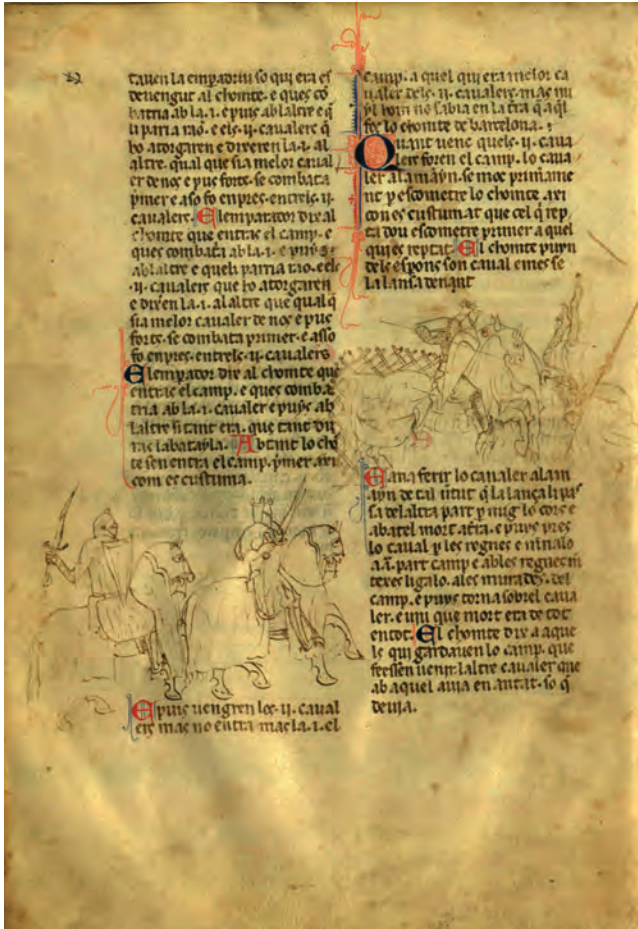 tauen la emperadriu so qui era es
deuengut al chomte. e ques cō
batria ab la .i. e puys ab laltre e q̄
li parria rao. e els .ii. caualers q̄
ho atorgaren e dixeren la .i. al
altre. qual que sia melor caual
er de nos e pus forts. se combata
p̄mer e aso fo enpres. entrels .ii.
caualers. El emparador dix al
chomte que entras el camp. e
ques combata ab la .i. e puys
ab laltre e quels parria rao. e els
.ii. caualers que ho atorgaren
e dixen la .i. al altre que qual q̄
sia melor caualer de nos e pus
forts. se combata primer. e asso
fo enpres. entrels .ii. caualers
El emperador dix al chomte que
entras el camp. e ques comba
tria ab la .i. caualer e puys ab
laltre si tant era. que tant du
ras la batayla. Ab tant lo chō
te sen entra el camp. p̄mer axi
com es custuma.
E puis uengren los .ii. caual
ers mas no entra mas la .i. el
camp. a quel qui era melor ca
ualer dels .ii. caualers. mas nu
yl hom no sabia en la t̄ra q̄ aq̄l
fos lo chomte de barcelona.
Quant uenc quels .ii. caua
lers foren el camp. lo caua
ler alamayn. se moc primame
nt p escometre lo chomte. axi
con es custumat que cel q̄ rep
ta dou escometre primer a quel
qui es reptat. El chomte puyn
dels espons son caual e mes se
la lansa denant
E ana ferir lo caualer alam
ayn de tal uirtut q̄ la lança li pa
sa delaltra part p mig lo cors e
abatel mort a t̄ra. e puys pres
lo caual p les regnes e menalo
a .i. part camp e ab les regnes m
texes ligalo. a les murades. del
camp. e puys torna sobrel caua
ler. e uiu que mort era de tot
en tot. El chomte dix a aque
ls qui gardauen lo camp. que
feessen uenir laltre caualer que
ab aquel auia en antat. so q̄
deuia.